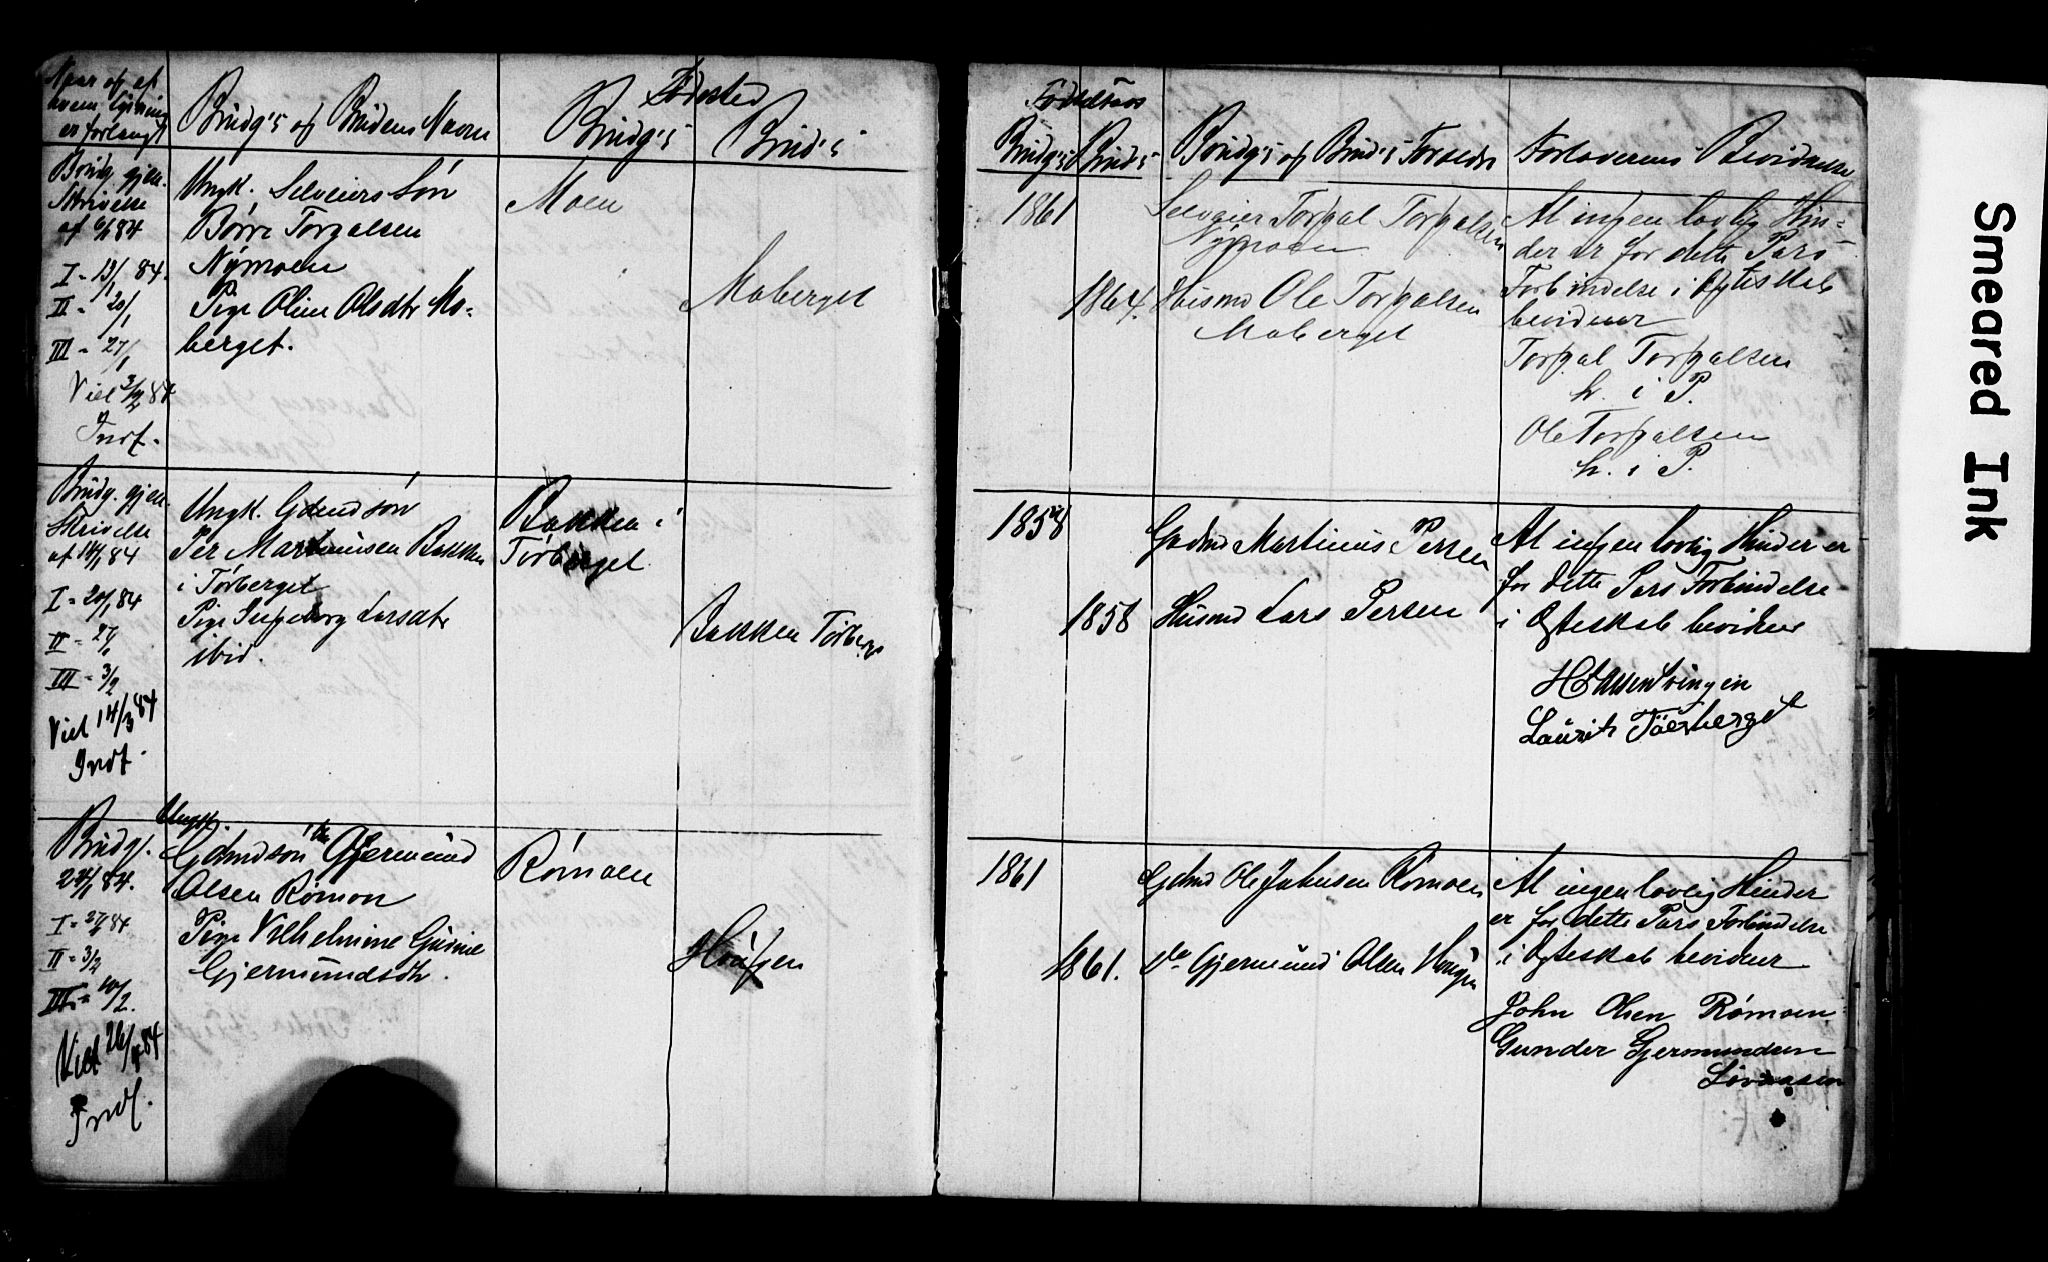 Naar og af
hvem lysning
er forlangt
Brudg's og Brudens Navne
Fødested
Brudg's
Brud's
Fødselsaar
Brudg's
Brud's
Brudg's og Brud's Forældre
Forlovernes Bevidnelse
Brudg. gjen.
Skrivelse
af 6/1 84
I - 13/1 84.
II - 20/1
III - 27/1
Viet 3/2 84
Indf.
Ungk. Selveiers Søn
Børre Torgalsen
Nymoen
Pige Oline Olsdtr Mo-
berget.
Moen
Moberget
1861
1864.
Selveier Torgal Torgalsen
Nymoen
Husmd Ole Torgalsen
Moberget
At ingen lovlig Hin-
der er for dette Pars
Forbindelse i Ægteskab
bevidner
Torgal Torgalsen
h. i P.
Ole Torgalsen
h. i P.
Brudg. gjen.
Skrivelse
af 14/1 84
I - 20/1 84
II - 27/1
III - 3/2
Viet 14/3 84
Indf.
Ungk. Gdmdsøn
Per Martinusen Bakken
i Tørberget
Pige Ingeborg Larsdtr
ibid.
Bakken i
Tørberget
Bakken Tørberget
1858
1858
Gadmd Martinus Persen
Husmd Lars Persen
At ingen lovlig Hinder er
for dette Pars Forbindelse
i Ægteskab bevidner
Laurits Töerberget
Brudg.
24/1 84.
I - 27/1 84
II - 3/2
III - 10/2.
Viet 26/4 84
Indf.
Ungk.
Gdmdsøn Gjermund
Olsen Rømoen
Pige Vilhelmine Gurine
Gjermundsdtr.
Rømoen
Hougen
1861
1861.
Gdmd Ole Johnsen Rømoen
do Gjermund Olsen Hougen
At ingen lovlig Hinder
er for dette Pars Forbindelse
i Ægteskab bevidner
John Olsen Rømoen
Gunder Gjermundsen
Smeared Ink